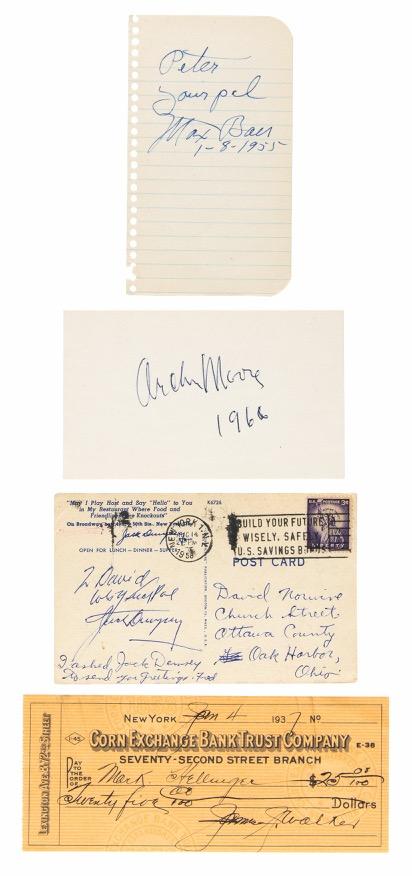 Peter
Your pal
Max Baer
1-8-1955
Archie Moore
1966
"May I Play Host and Say "Hello" to You
in My Restaurant Where Food and
On Broadway
Jack Dempsey
OPEN FOR LUNCH — DINNER — SUPPER
K6726
NEW YORK 1, N.Y.
DEC 14
PM
BUILD YOUR FUTURE
WISELY, SAFELY
U.S. SAVINGS BONDS
U.S. POSTAGE
3¢
LIBERTY
POST CARD
2 David
Jack Dempsey
I asked Jack Dempsey
to send you greetings. Fred
David
Church Street
Ottawa County
Oak Harbor,
Ohio
LEXINGTON AVE. & 72ND STREET
NEW YORK Jan 4 1937 No
1-45
CORN EXCHANGE BANK TRUST COMPANY
E-36
SEVENTY-SECOND STREET BRANCH
PAY TO THE ORDER OF Mark Hellinger $25 00/100
Twenty five 00/100 Dollars
James J. Walker